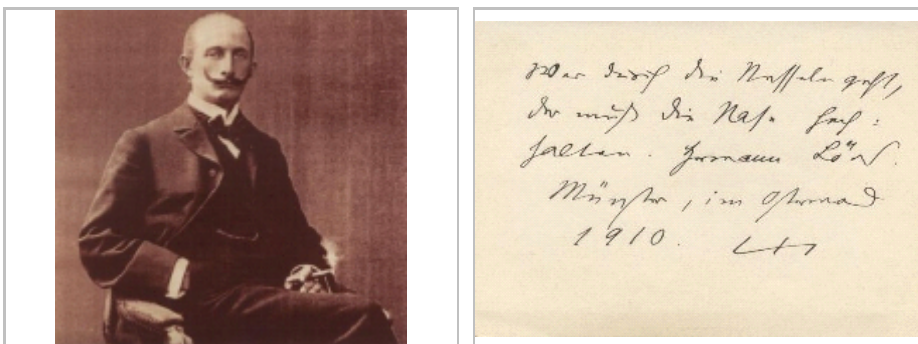 Wer durch die Nesseln geht,
der muß die Nase hoch=
halten. Hermann Löns.
Münster, im Ostermond
1910.